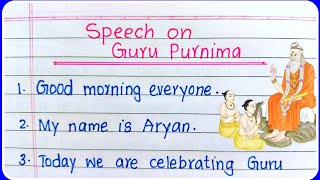 Speech on
Guru Purnima
1. Good morning everyone.
2. My name is Aryan.
3. Today we are celebrating Guru